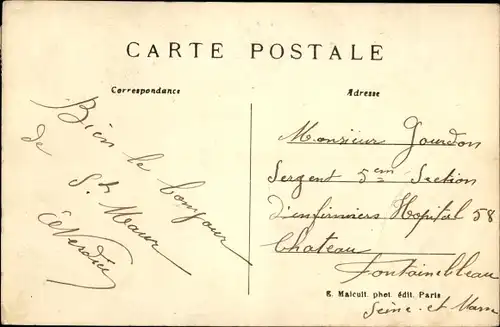 CARTE POSTALE
Correspondance
Adresse
Bien le bonjour
de St Maur
Monsieur Gourdon
Sergent 5em Section
D'enfirmiers Hopital 58
Chateau
Fontainebleau
Seine et Marne
E. Malcuit. phot. édit. Paris